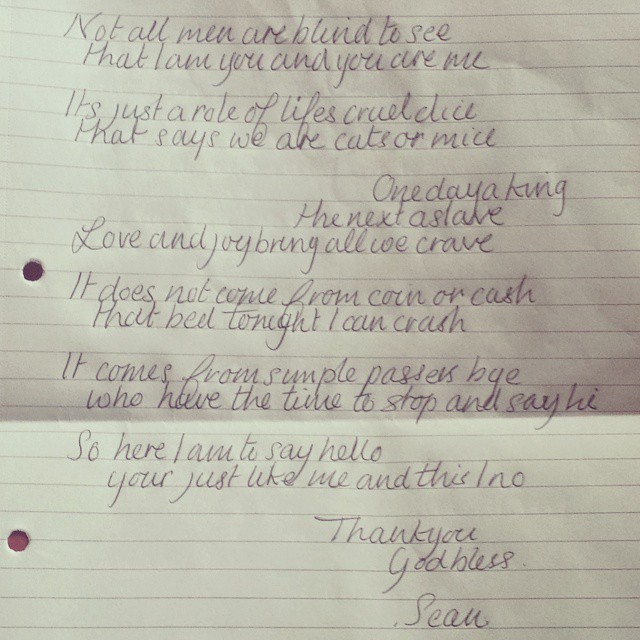 Not all men are blind to see
that I am you and you are me
Its just a role of lifes cruel dice
that says we are cats or mice
One day a king
the next a slave
Love and joy bring all we crave
It does not come from coin or cash
that bed tonight I can crash
It comes from simple passers bye
who have the time to stop and say hi
So here I am to say hello
your just like me and this I no
Thankyou
Godbless.
Sean